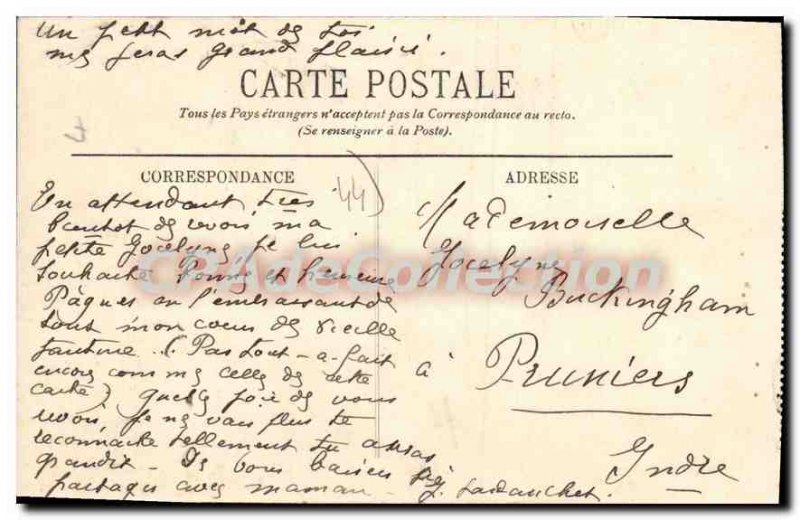 Un petit mot de toi
me feras grand plaisir.
CARTE POSTALE
Tous les Pays étrangers n'acceptent pas la Correspondance au recto.
(Se renseigner à la Poste).
CORRESPONDANCE
ADRESSE
44
En attendant, très
bientôt de vous ma
petite Jocelyne, je lui
souhaite bonnes et heureuse
Pâques en l'embrassant de
tout mon coeur de vieille
tantine. (Pas tout-a-fait
encore comme celle de cette
carte) quelle joie de vous
voir, je ne vais plus te
reconnaître tellement tu auras
grandit - Je vous baisers
partagés avec maman. J.
Mademoiselle
Jocelyne
Buckingham
à Pruniers
Indre
CPAdeCollection